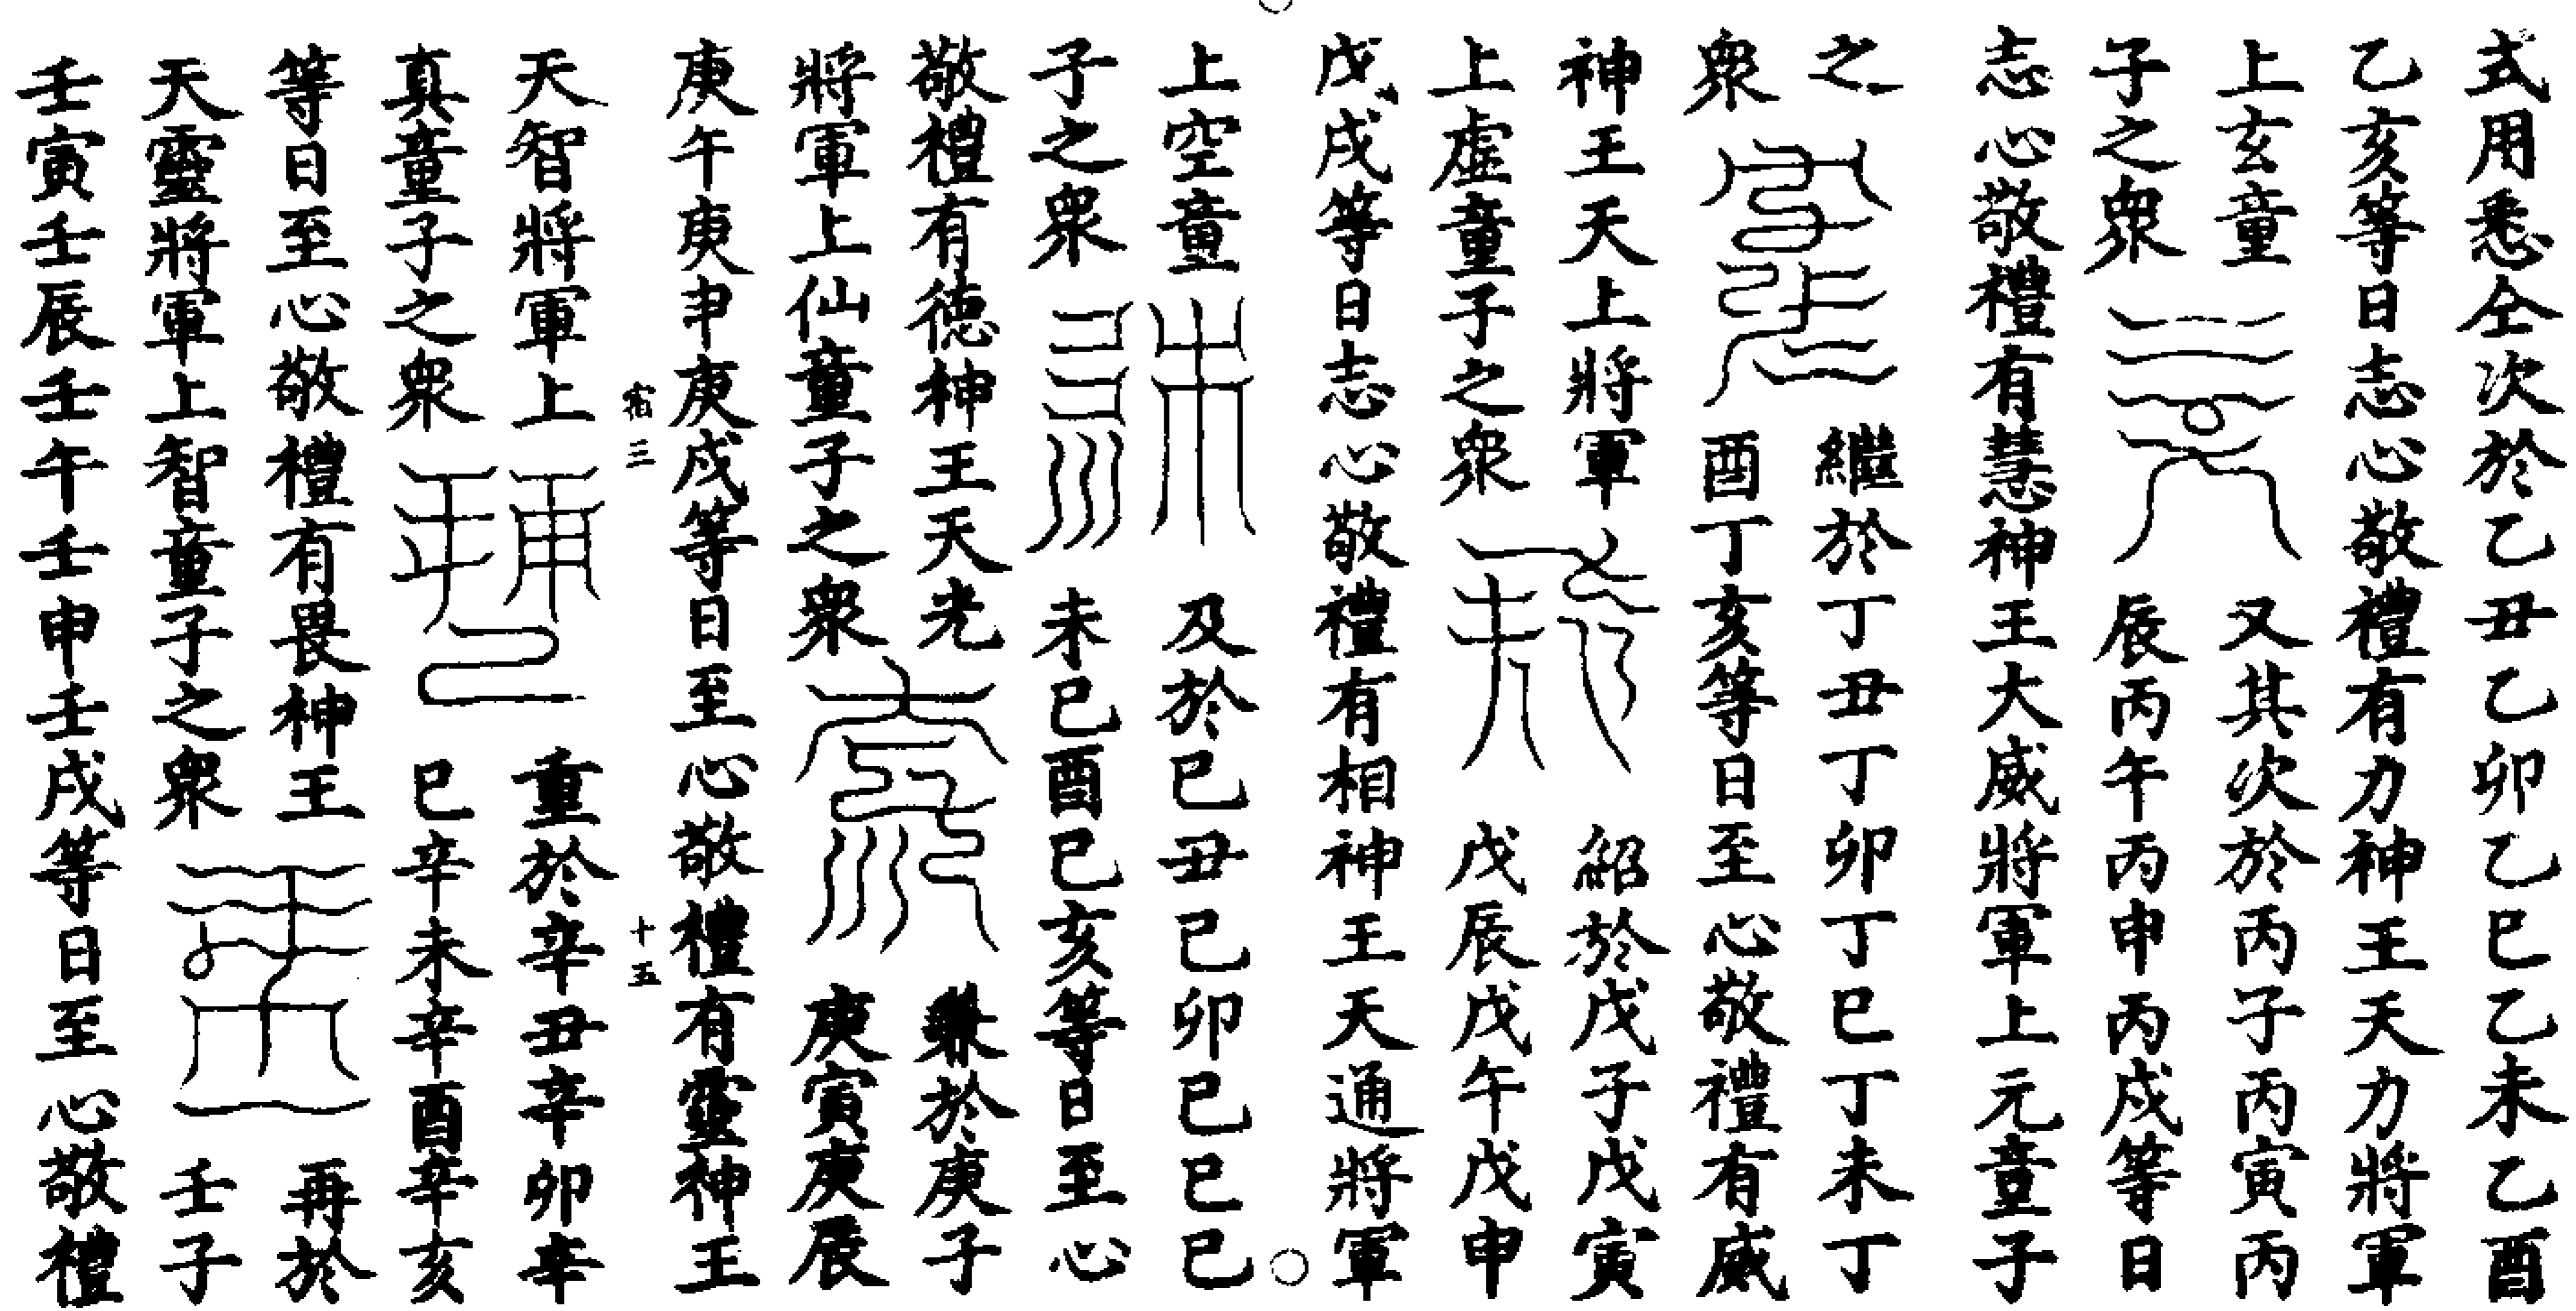 式用悉仝次於乙丑乙卯乙巳乙未乙酉
乙亥等日志心敬禮有力神王天力將軍
上玄童 又其次於丙子丙寅丙
子之眾 辰丙午丙申丙戌等日
志心敬禮有慧神王大威將軍上元童子
之 繼於丁丑丁卯丁巳丁未丁
眾 酉丁亥等日至心敬禮有威
神王天上將軍 紹於戊子戊寅
上虛童子之眾 戊辰戊午戊申
戊戌等日志心敬禮有相神王天通將軍
上空童 及於己丑己卯己巳己
子之眾 未己酉己亥等日至心
敬禮有德神王天光 兼於庚子
將軍上仙童子之眾 庚寅庚辰
庚午庚申庚戌等日至心敬禮有靈神王
宿三 十五
天智將軍上 重於辛丑辛卯辛
真童子之眾 巳辛未辛酉辛亥
等日至心敬禮有畏神王 再於
天靈將軍上智童子之眾 壬子
壬寅壬辰壬午壬申壬戌等日至心敬禮